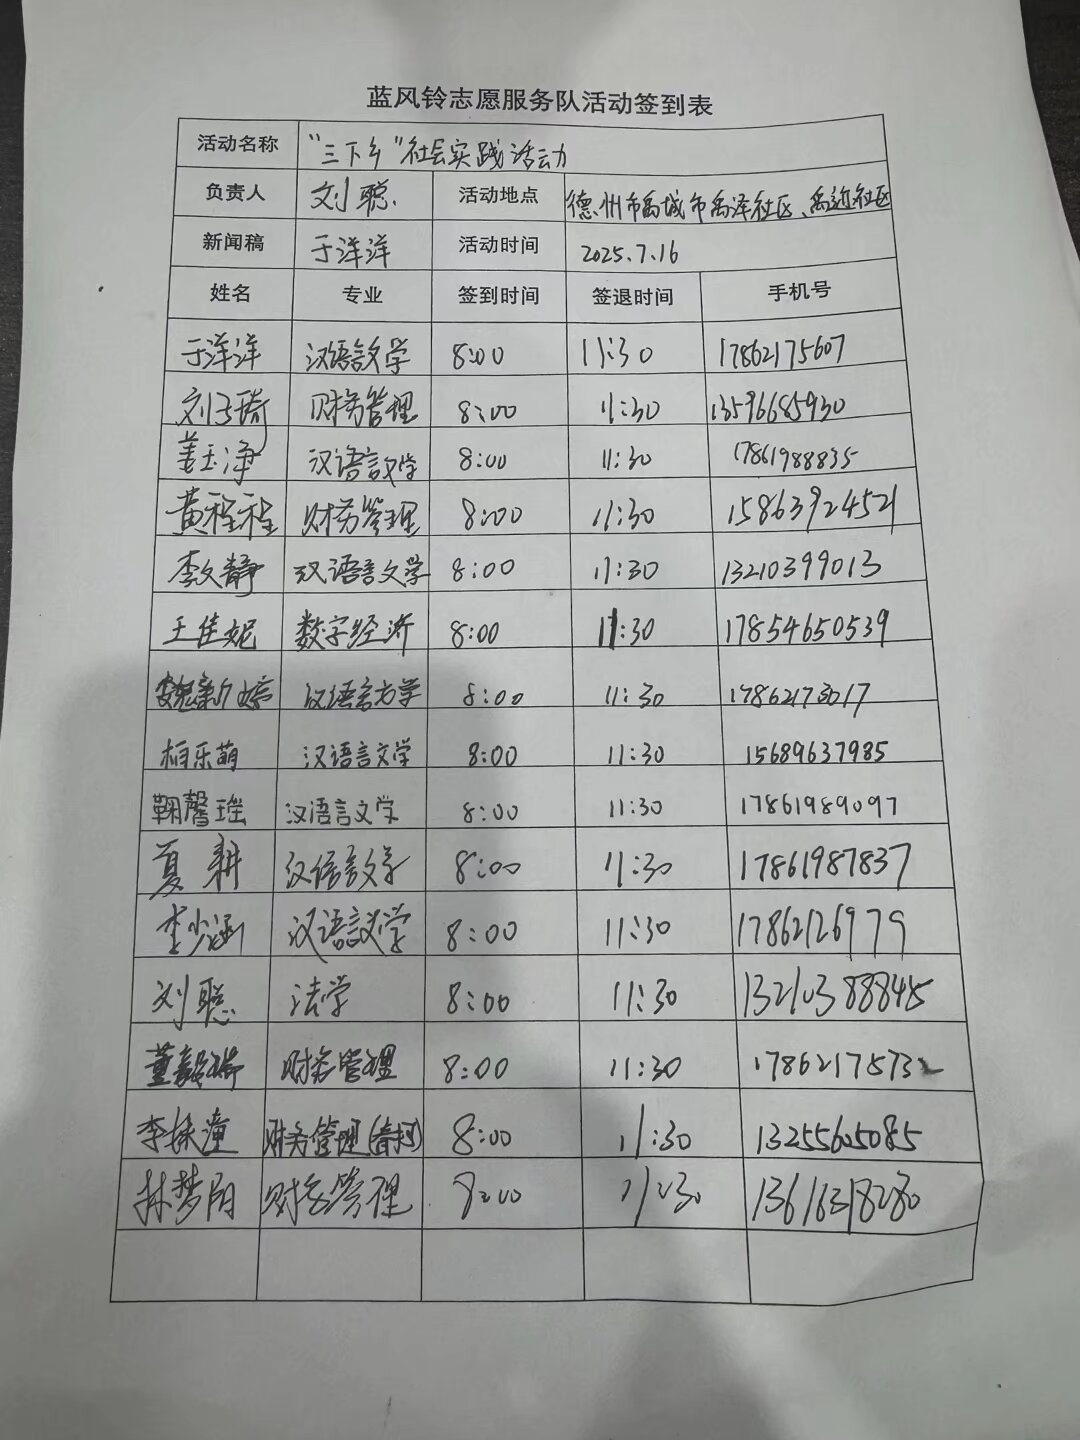 蓝风铃志愿服务队活动签到表
活动名称 "三下乡"社会实践活动
负责人 刘聪 活动地点 德州市禹城市禹泽社区、禹近社区
新闻稿 于洋洋 活动时间 2025.7.16
姓名 专业 签到时间 签退时间 手机号
于洋洋 汉语言文学 8:00 11:30 17862175607
刘子琦 财务管理 8:00 11:30 13596685930
姜玉净 汉语言文学 8:00 11:30 17861988835
黄程程 财务管理 8:00 11:30 15863924521
李文静 汉语言文学 8:00 11:30 13210399013
王佳妮 数字经济 8:00 11:30 17854650539
魏新婷 汉语言文学 8:00 11:30 17862173017
柏乐萌 汉语言文学 8:00 11:30 15689637985
鞠馨瑶 汉语言文学 8:00 11:30 17861989097
夏耕 汉语言文学 8:00 11:30 17861987837
李少涵 汉语言文学 8:00 11:30 17862126979
刘聪 法学 8:00 11:30 13210388845
董 财务管理 8:00 11:30 1786217573
李 潼 财务管理 8:00 11:30 13255605085
林梦阳 财务管理 8:00 11:30 13616318280